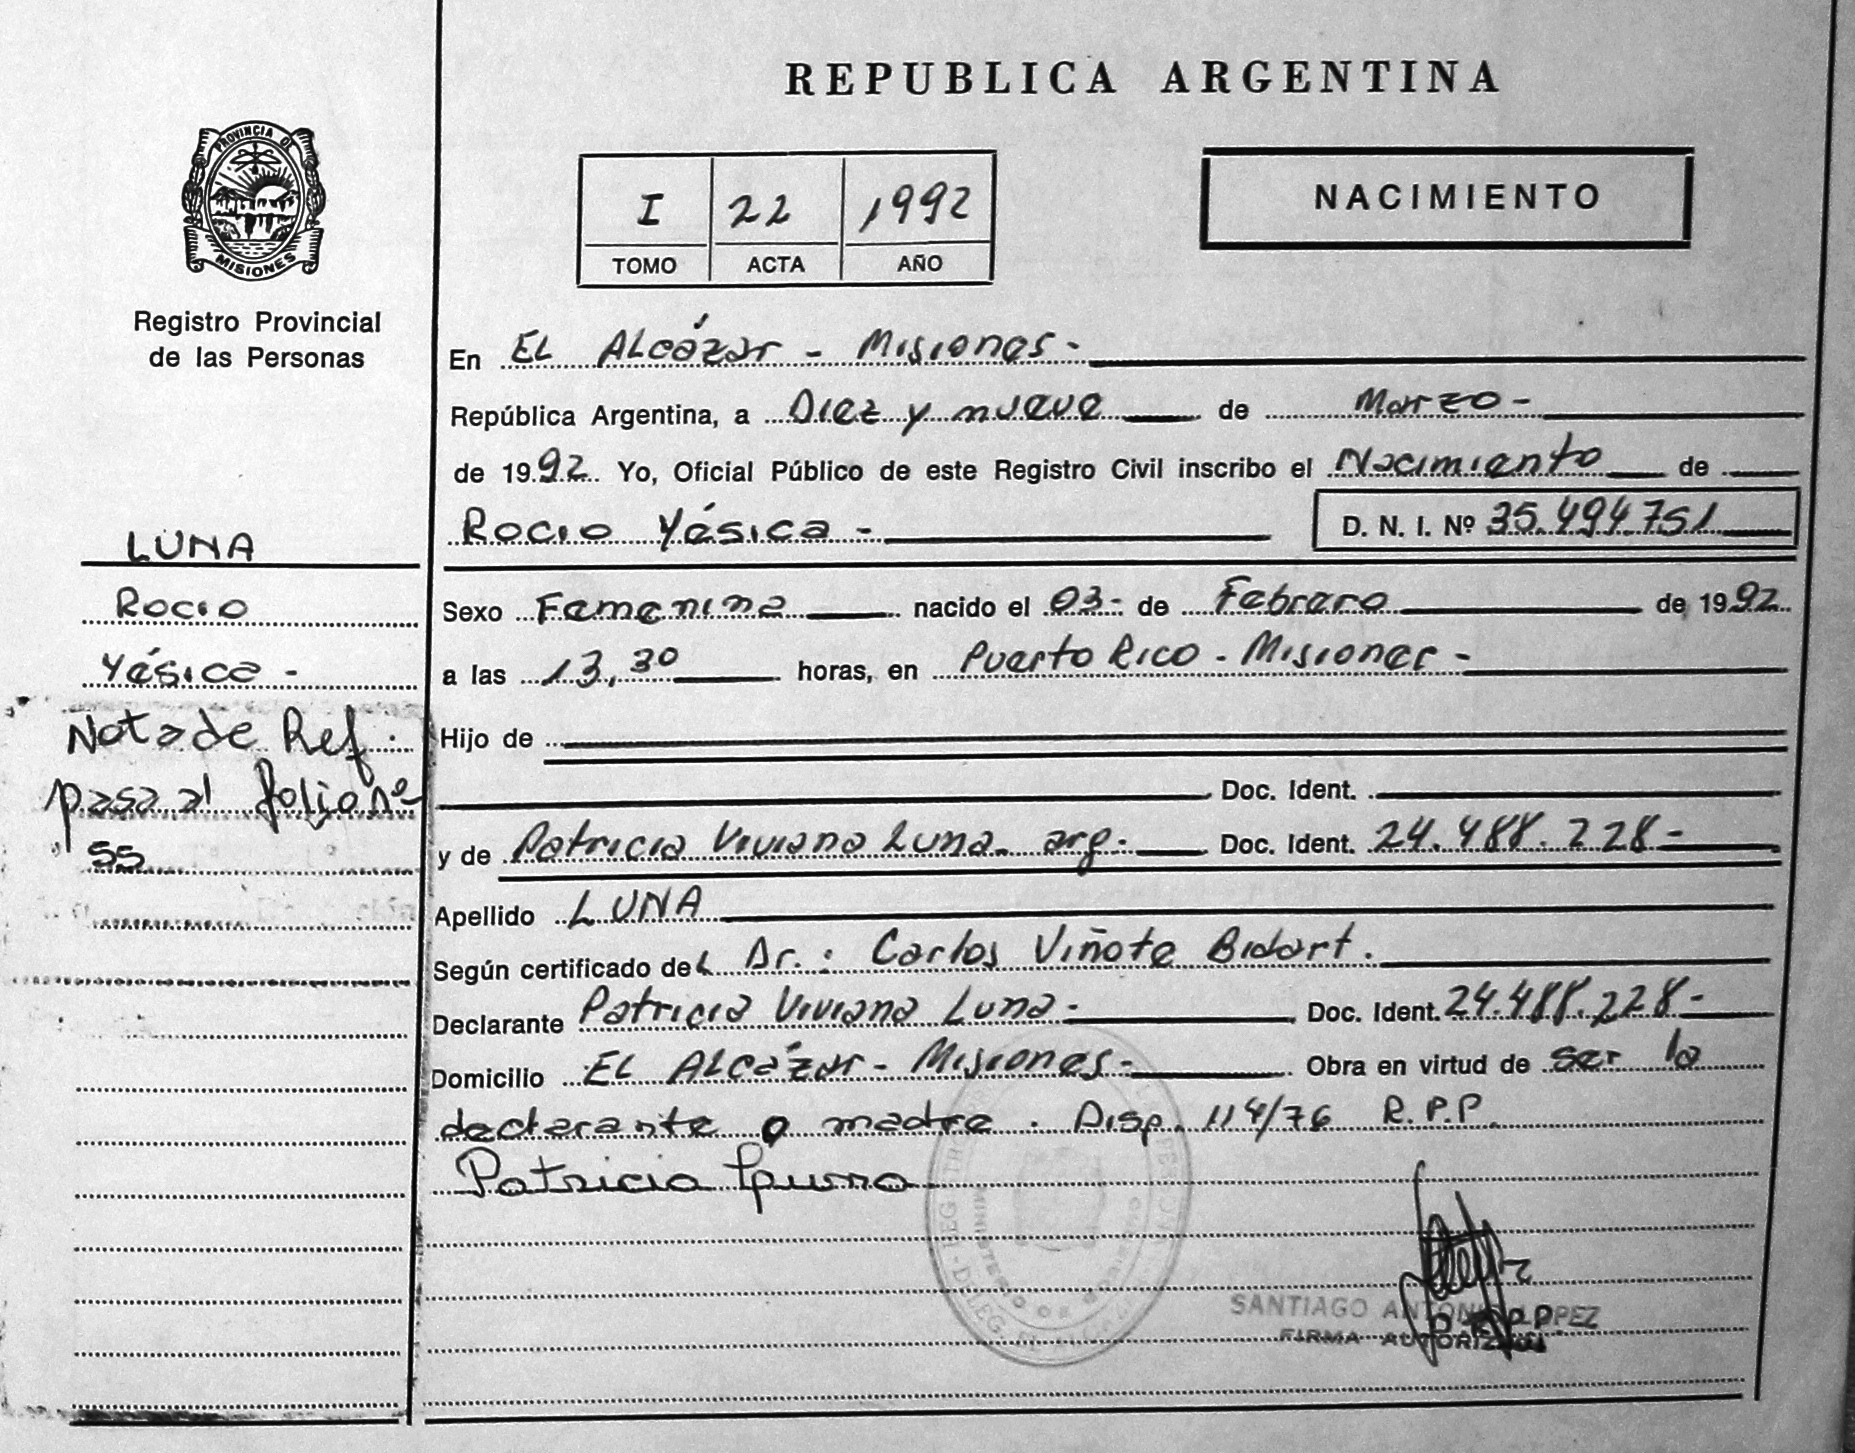 REPUBLICA ARGENTINA
PROVINCIA DE
MISIONES
Registro Provincial
de las Personas
I 22 1992
TOMO ACTA AÑO
NACIMIENTO
En EL ALcázar - Misiones -
República Argentina, a Diez y nueve de Marzo -
de 1992 Yo, Oficial Público de este Registro Civil inscribo el Nacimiento de
Rocio Yésica - D. N. I. Nº 35.494.751
LUNA
Rocio
Yésica -
Nota de Ref.
pasa al folio nº
55
Sexo Femenina nacido el 03- de Febrero de 1992
a las 13,30 horas, en Puerto Rico - Misiones -
Hijo de
Doc. Ident.
y de Patricia Viviana Luna - arg - Doc. Ident. 24.488.228 -
Apellido LUNA
Según certificado del Dr.: Carlos Viñote Bidart.
Declarante Patricia Viviana Luna - Doc. Ident. 24.488.228 -
Domicilio EL ALcázar - Misiones - Obra en virtud de ser la
declarante o madre. Disp. 114/76 R.P.P.
Patricia
SANTIAGO ANTONIO LOPEZ
FIRMA AUTORIZADA